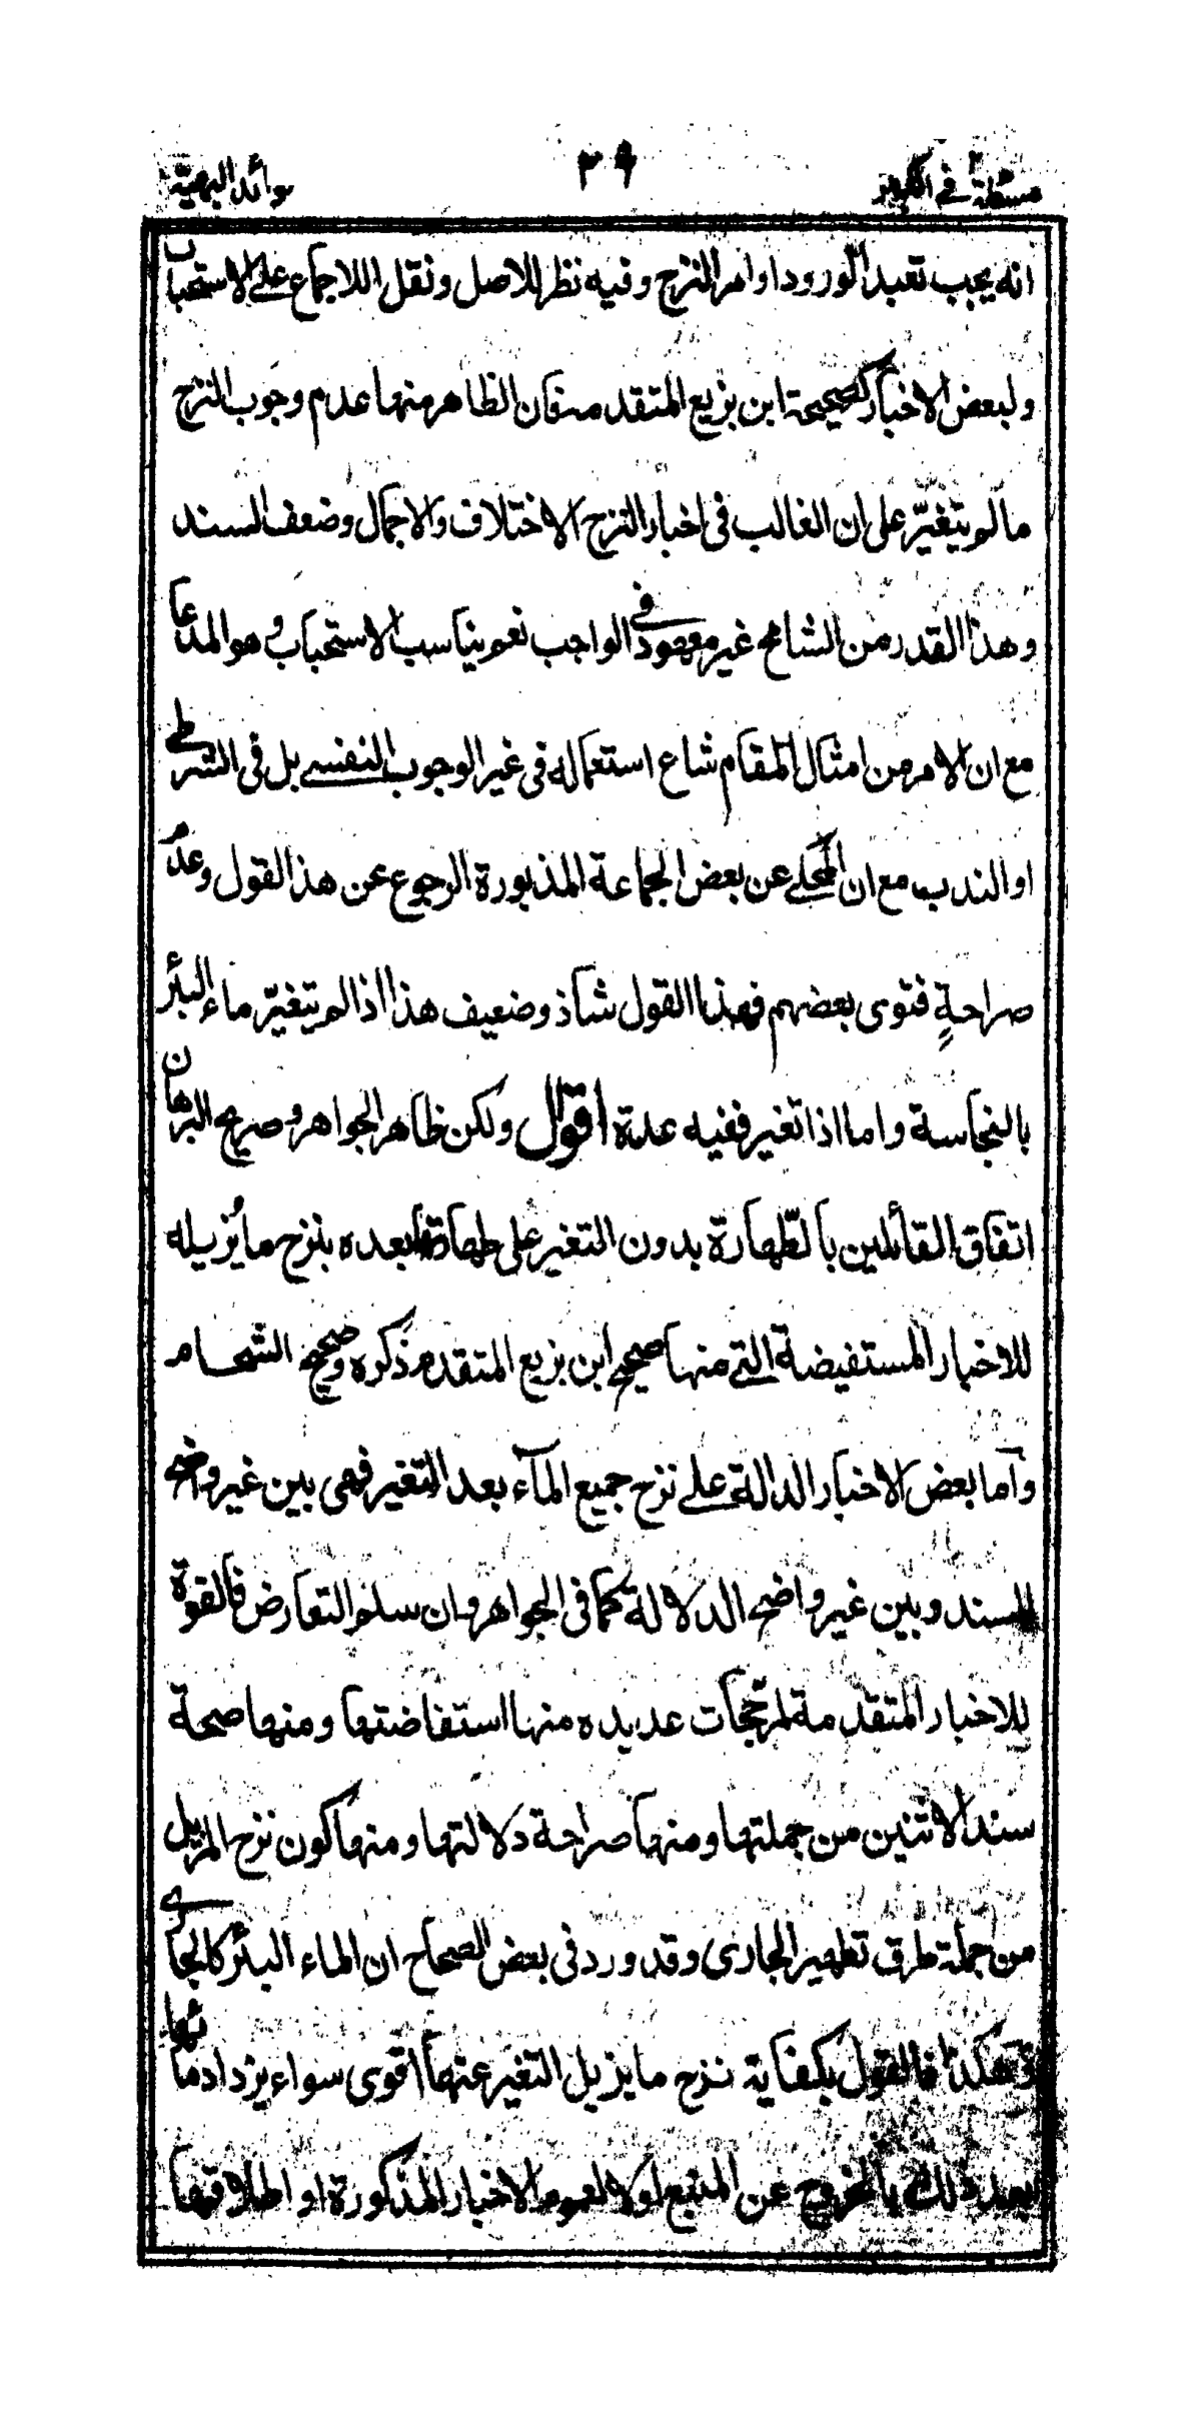 مسئلة في التطهير
٣٩
موائد البهية
انه يجب تعبدا لورود اوامر النزح وفيه نظر للاصل ونقل اللاجماع على الاستحباب
ولبعض الاخبار كصحيحة ابن بزيع المتقدمة فان الظاهر منها عدم وجوب النزح
ما لم يتغيّر على ان الغالب فى اخبار النزح الاختلاف والاجمال وضعف السند
وهذا القدر من التسامح غير معهود فى الواجب نعم يناسب الاستحباب وهو المدعا
مع ان الامر من امثال المقام شاع استعماله فى غير الوجوب النفسے بل فى الشرطے
او الندب مع ان المحكے عن بعض الجماعة المذبورة الرجوع عن هذا القول وعدم
صراحةٍ فتوى بعضهم فهذا القول شاذ وضعيف هذا اذا لم يتغيّر ماء البئر
بالنجاسة واما اذا تغير ففيه عدة اقوال ولكن ظاهر الجواهر وصريح البرهان
اتفاق القائلين بالطّهارة بدون التغير على طهارتها بعده بنزح ما يُزيله
للاخبار المستفيضة التے منها صحيح ابن بزيع المتقدم ذكره وصحيح الشحام
وآما بعض الاخبار الدالة علے نزح جميع المآء بعد التغير فهى بين غير واضح
السند وبين غير واضح الدلالة كما فى الجواهر وان سلم التعارض فالقوة
للاخبار المتقدمة لمرجحات عديده منها استفاضتها ومنها صحة
سند الاثنين من جملتها ومنها صراحة دلالتها ومنها كون نزح المزيل
من جملة طرق تطهير الجارى وقد ورد فى بعض الصحاح ان الماء البئر كالجارے
هكذا فالقول بكفاية نزح ما يزيل التغير عنها اقوى سواء يزداد مائها
بعد ذلك بالخروج عن المنبع اولا لعموم الاخبار المذكورة او اطلاقها